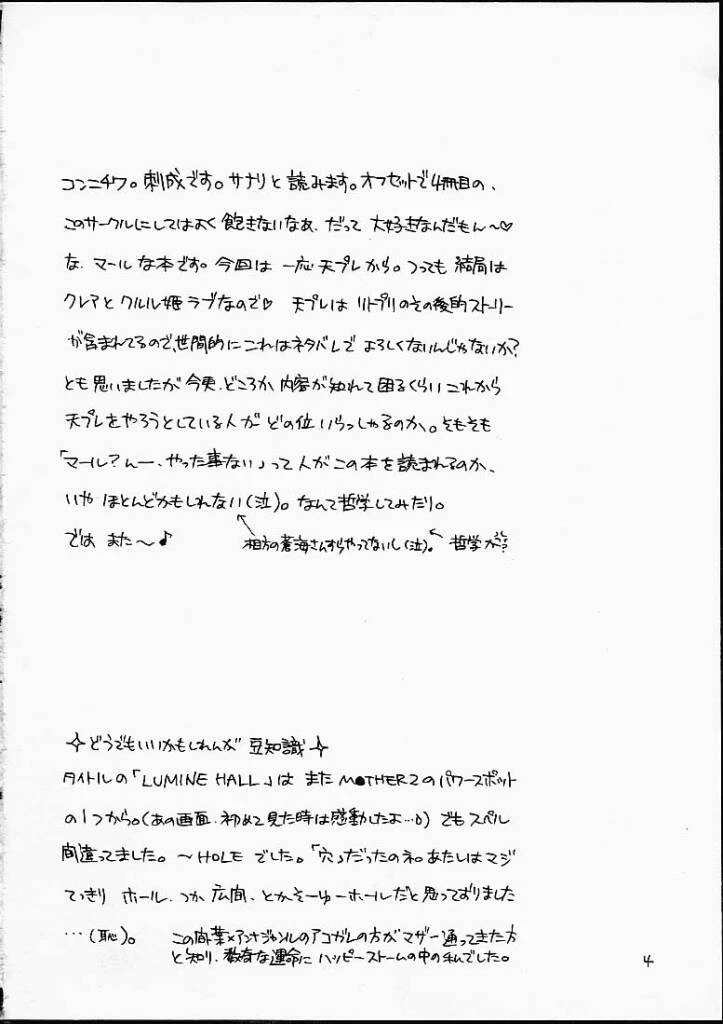 コンニチワ。刺成です。サナリと読みます。オフセットで4冊目の、
このサークルにしてはよく飽きないなあ、だって大好きなんだもん〜♡
な、マールな本です。今回は一応天プレから。つっても結局は
クレアとクルル姫ラブなので♡ 天プレはリトプリのその後的ストーリー
が含まれてるので、世間的にこれはネタバレでよろしくないんじゃないか?
とも思いましたが今更、どころか内容が知れて困るくらいこれから
天プレをやろうとしている人がどの位いらっしゃるのか。そもそも
「マール?んー、やった事ない」って人がこの本を読まれるのか、
いやほとんどかもしれない(泣)。なんて哲学してみたり。
では また〜♪ 相方の蒼海さんすらやってないし(泣)。 哲学か?
✧どうでもいいかもしれんが 豆知識✧
タイトルの「LUMINE HALL」は またM●THER2のパワースポット
の1つから。(あの画面、初めて見た時は感動したよ…) でもスペル
間違ってました。〜HOLEでした。「穴」だったのネ。あたしはマジ
てっきり ホール、つか 広間、とかそーゆーホールだと思っておりました
…(恥)。 この間葉×アンナジャンルのアコガレの方がマザー通ってきた方
と知り、数奇な運命にハッピーストームの中の私でした。
4